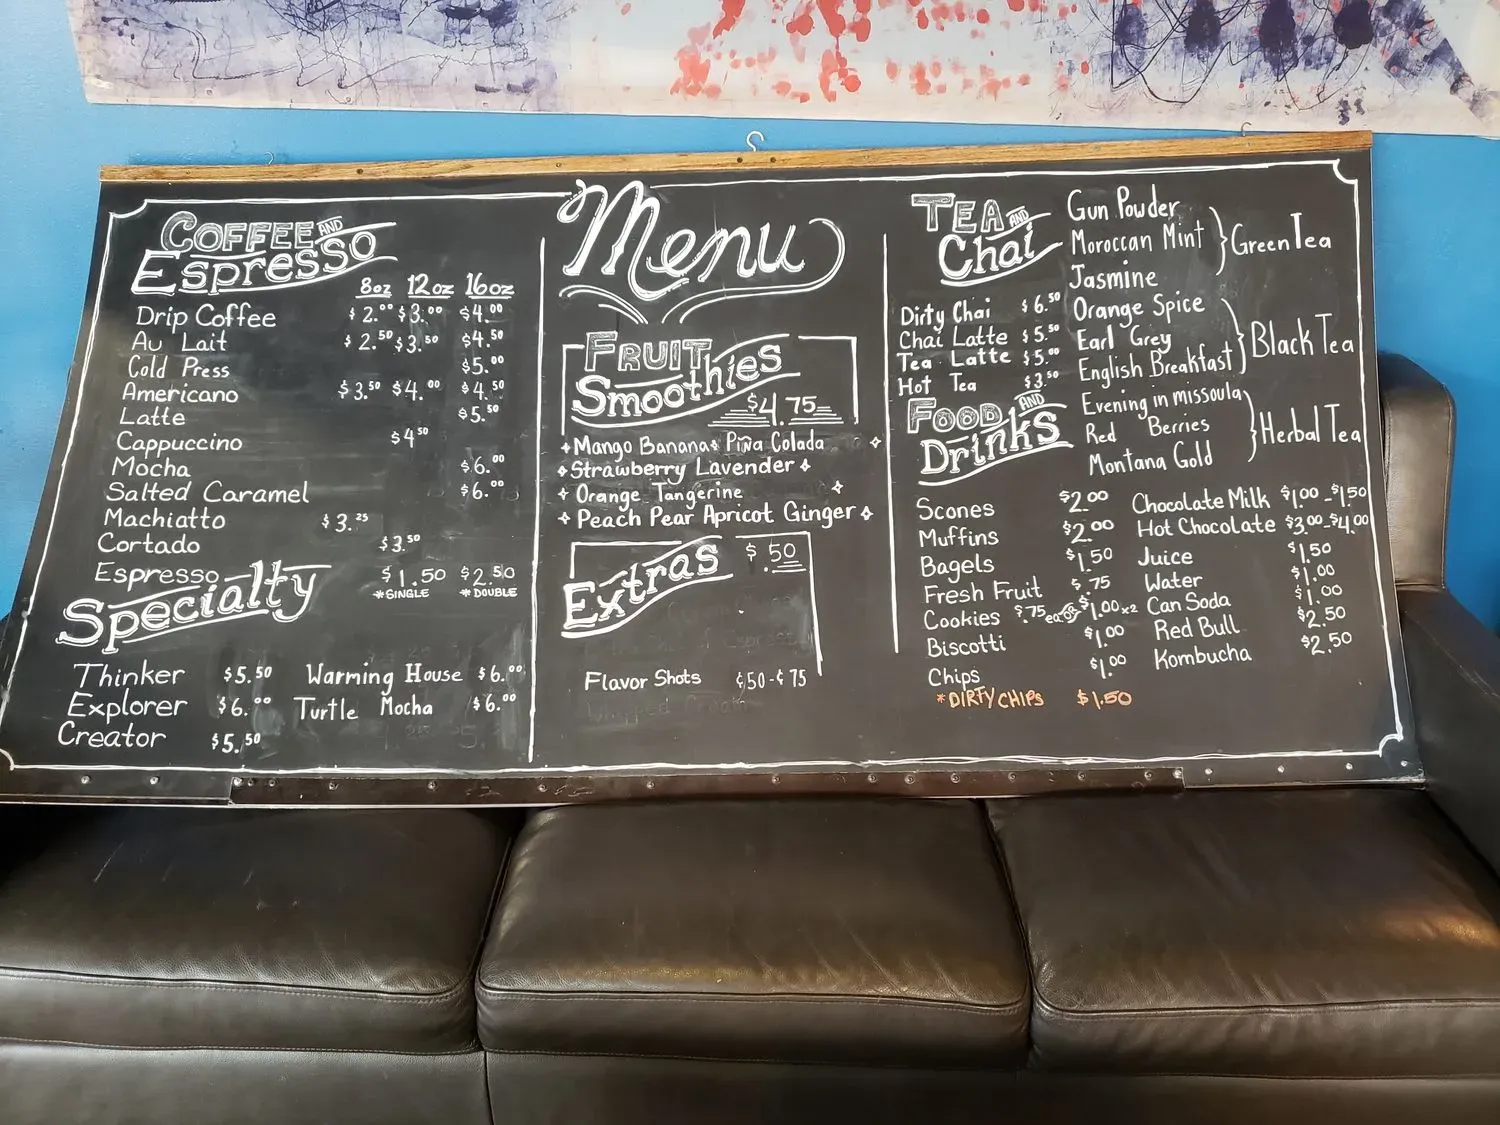 Menu
COFFEE AND
Espresso
8oz 12oz 16oz
Drip Coffee $2.00 $3.00 $4.00
Au Lait $2.50 $3.50 $4.50
Cold Press $5.00
Americano $3.50 $4.00 $4.50
Latte $5.50
Cappuccino $4.50
Mocha $6.00
Salted Caramel $6.00
Machiatto $3.25
Cortado $3.50
Espresso $1.50 $2.50
*SINGLE *DOUBLE
Specialty
Thinker $5.50 Warming House $6.00
Explorer $6.00 Turtle Mocha $6.00
Creator $5.50
FRUIT
Smoothies
$4.75
Mango Banana Piña Colada
Strawberry Lavender
Orange Tangerine
Peach Pear Apricot Ginger
Extras $.50
Flavor Shots ¢50-¢75
TEA AND
Chai
Dirty Chai $6.50
Chai Latte $5.50
Tea Latte $5.00
Hot Tea $3.50
Gun Powder
Moroccan Mint } Green Tea
Jasmine
Orange Spice
Earl Grey } Black Tea
English Breakfast
Evening in missoula
Red Berries } Herbal Tea
Montana Gold
FOOD AND
Drinks
Scones $2.00 Chocolate Milk $1.00-$1.50
Muffins $2.00 Hot Chocolate $3.00-$4.00
Bagels $1.50 Juice $1.50
Fresh Fruit $.75 Water $1.00
Cookies $.75 ea or $1.00 x2 Can Soda $1.00
Biscotti $1.00 Red Bull $2.50
Chips $1.00 Kombucha $2.50
*DIRTY CHIPS $1.50